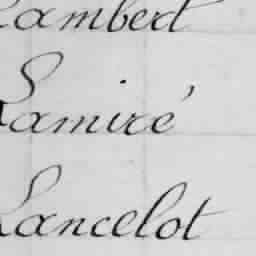 Lambert
Lamiré
Lancelot